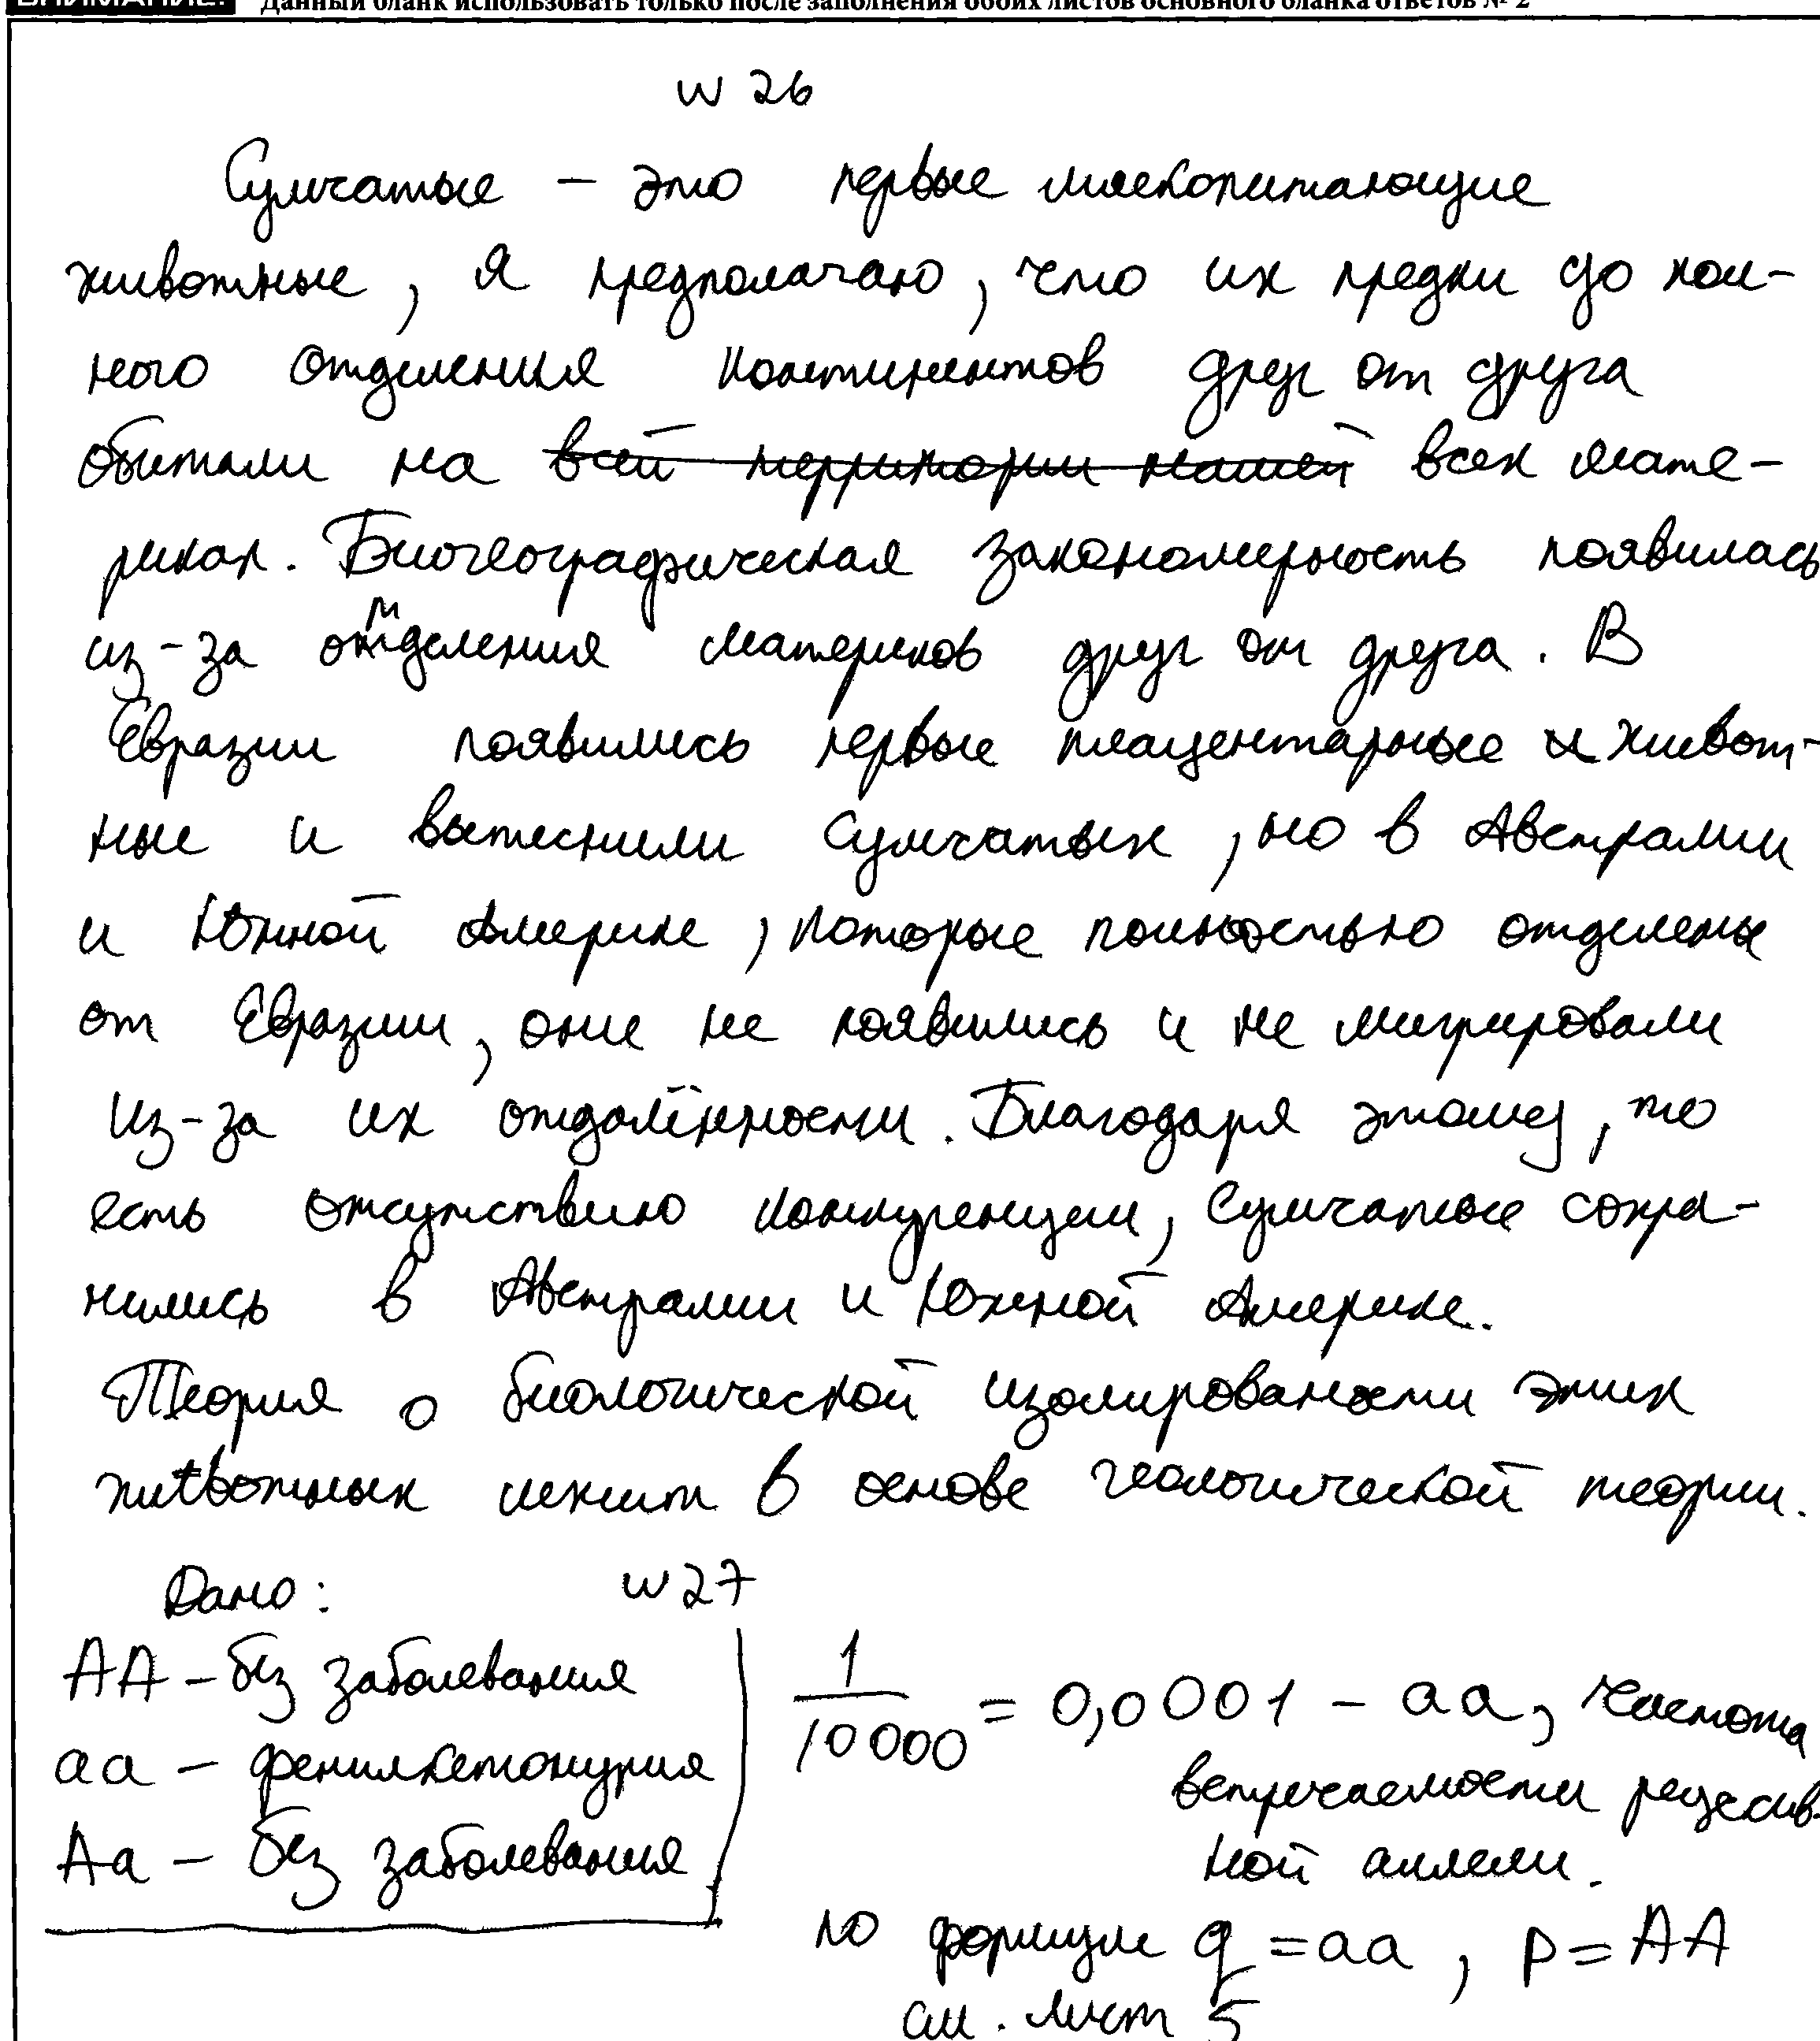 ВНИМАНИЕ! Данный бланк использовать только после заполнения обоих листов основного бланка ответов № 2
№ 26
Сумчатые – это первые млекопитающие
животные, я предполагаю, что их предки до пол-
ного отделения континентов друг от друга
обитали на всей территории нашей всех мате-
риках. Биогеографическая закономерность появилась
из-за отделения материков друг от друга. В
Евразии появились первые плацентарные и живот-
ные и вытеснили сумчатых, но в Австралии
и Южной Америке, которые полностью отделены
от Евразии, они не появились и не мигрировали
из-за их отдалённости. Благодаря этому, то
есть отсутствию конкуренции, сумчатые сохра-
нились в Австралии и Южной Америке.
Теория о биологической изолированости этих
животных лежит в основе геологической теории.
Дано: № 27
AA – без заболевания
aa – фенилкетонурия
Aa – без заболевания
1/10000 = 0,0001 – aa, частота
встречаемости рецессив-
ной аллели.
по формуле q = aa, p = AA
см. лист 5